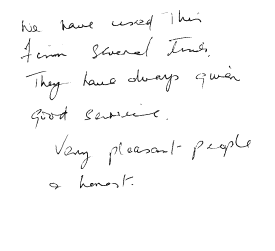 We have used This
firm several times.
They have always given
good service.
Very pleasant people
& honest.